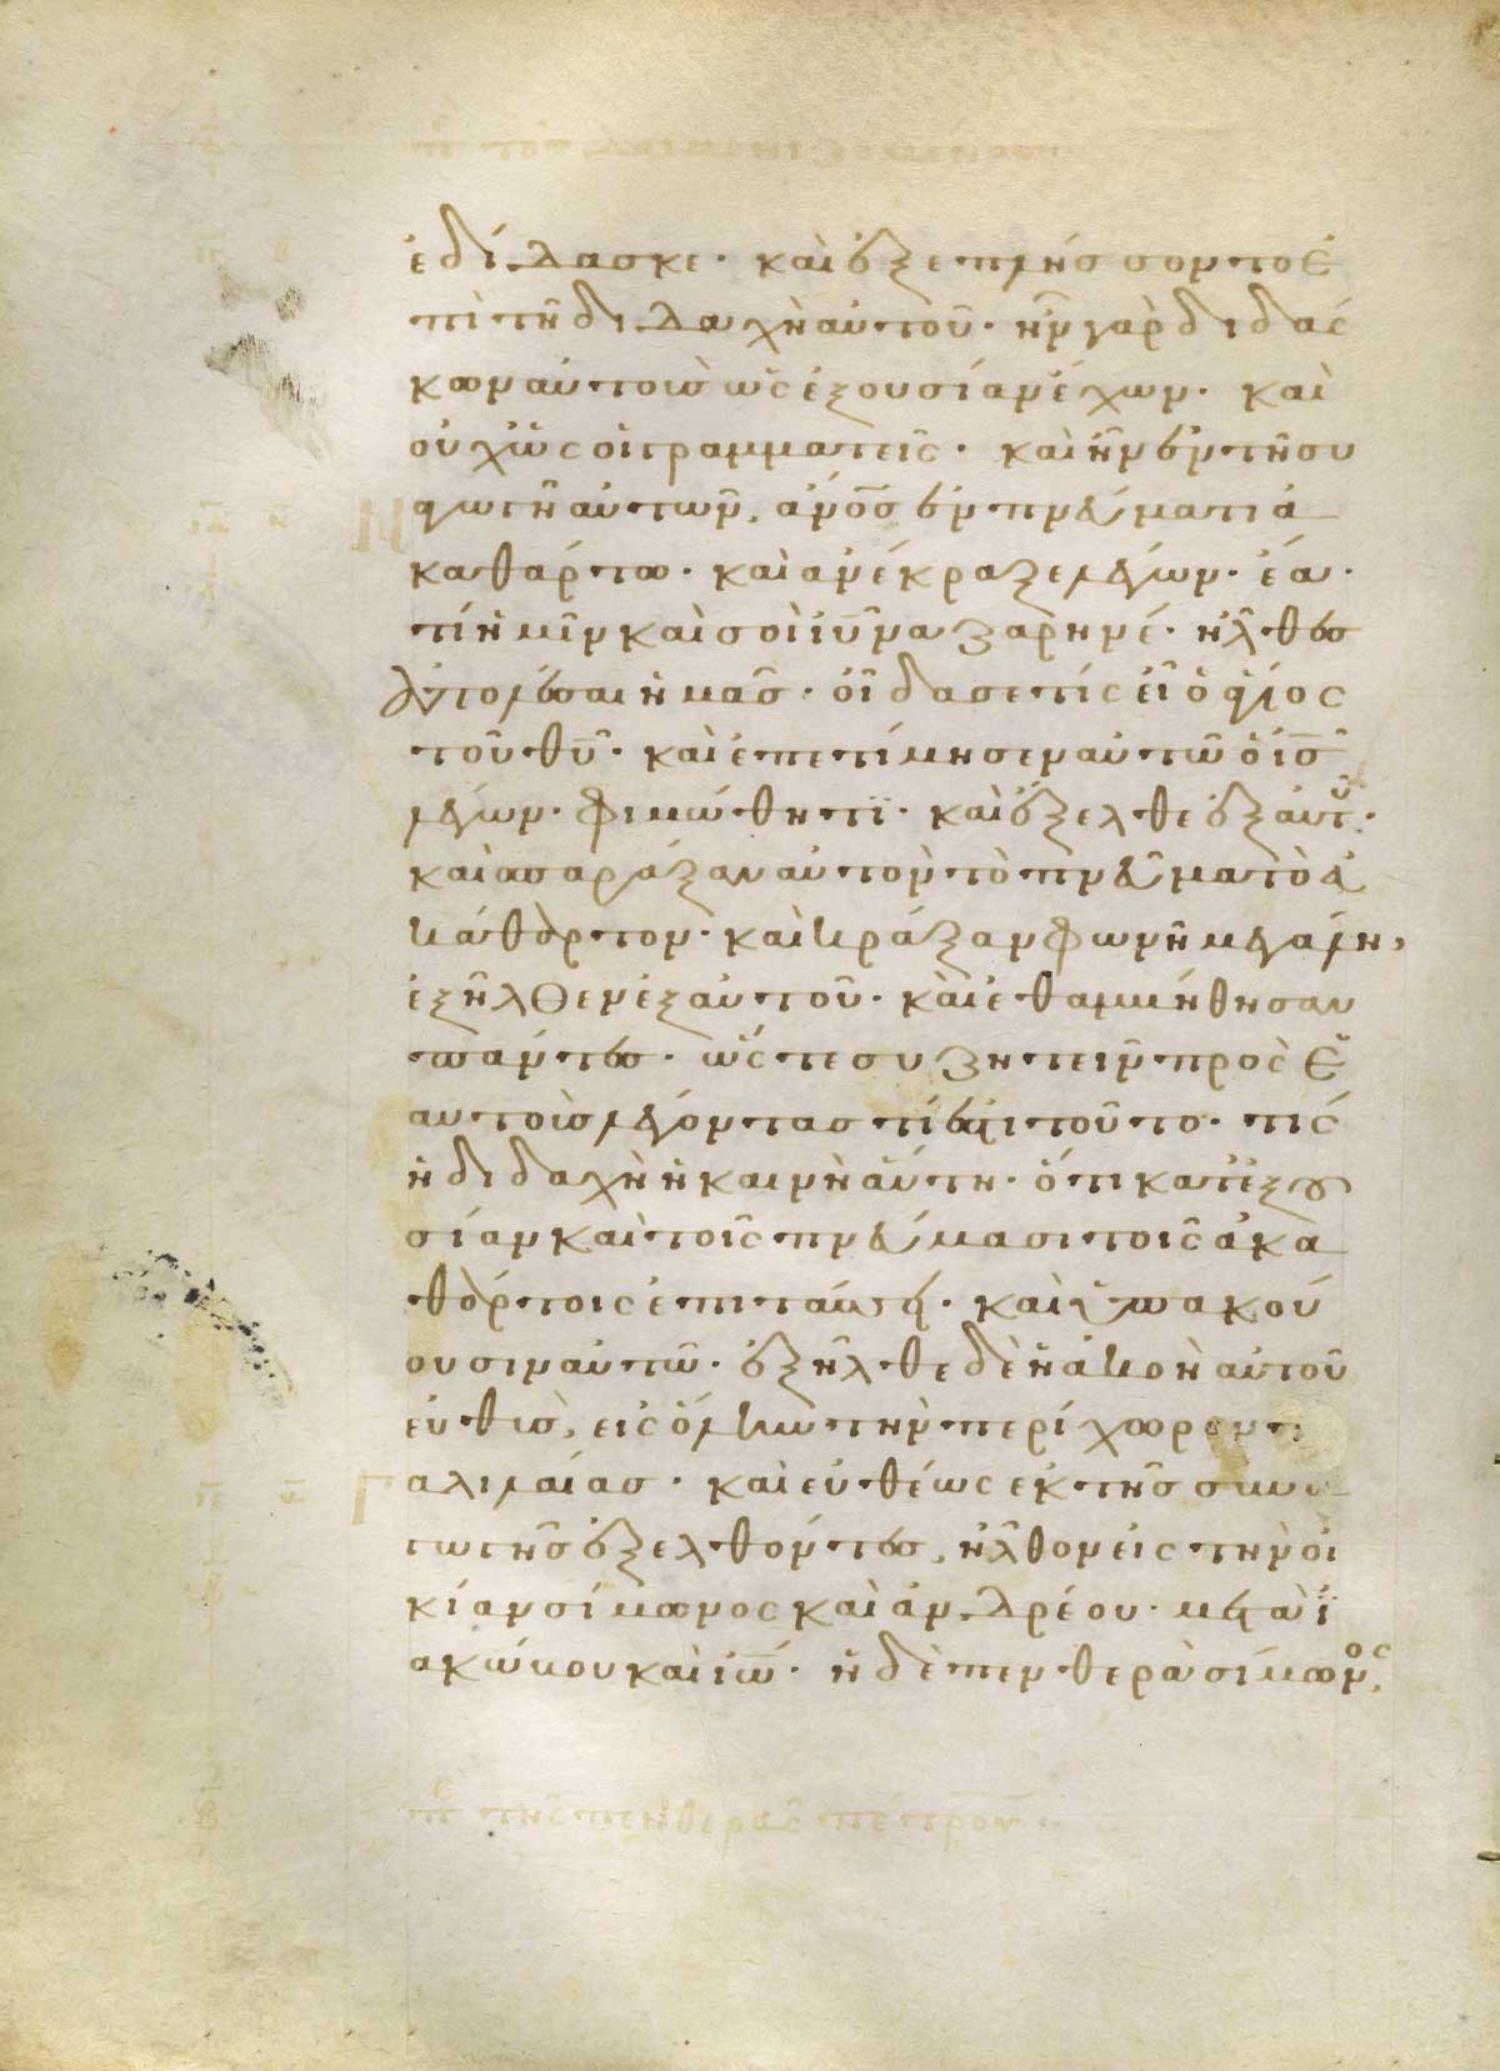 ἐδίδασκε· καὶ ἐξεπλήσσοντο ἐ
πὶ τῆ διδαχῆ αὐτοῦ· ἦν γὰρ διδάσ
κων αὐτοὺς ὡς ἐξουσίαν ἔχων· καὶ
οὐχ ὡς οἱ γραμματεῖς· καὶ ἦν ἐν τῆ συ
ναγωγῆ αὐτῶν, ἄνος ἐν πνεύματι ἀ
καθάρτω· καὶ ἀνέκραξε λέγων· ἔα·
τί ἡμῖν καὶ σοὶ ιυ ναζαρηνέ· ἦλθες
ἀπολέσαι ἡμᾶς· οἶδα σε τίς εἶ ὁ ἅγιος
τοῦ θυ· καὶ ἐπετίμησεν αὐτῶ ὁ ις
λέγων· φιμώθητι· καὶ ἔξελθε ἐξ αὐτοῦ·
καὶ σπαράξαν αὐτὸν τὸ πνεῦμα τὸ ἀ
κάθαρτον· καὶ κράξαν φωνῆ μεγάλη,
ἐξῆλθεν ἐξ αὐτοῦ· καὶ ἐθαμβήθησαν
πάντες· ὥστε συζητεῖν πρὸς ἑ
αυτοὺς λέγοντας τί ἐστι τοῦτο· τίς
ἡ διδαχὴ ἡ καινὴ αὕτη· ὅτι κατ ἐξου
σίαν καὶ τοῖς πνεύμασι τοῖς ἀκα
θάρτοις ἐπιτάσσει· καὶ ὑπακού
ουσιν αὐτῶ· ἐξῆλθε δὲ ἡ ἀκοὴ αὐτοῦ
εὐθὺς, εἰς ὅλην τὴν περίχωρον
γαλιλαίας· καὶ εὐθέως ἐκ τῆς συνα
γωγῆς ἐξελθόντες, ἦλθον εἰς τὴν οἰ
κίαν σίμωνος καὶ ἀνδρέου· μετὰ ἰ
ακώβου καὶ ιω· ἡ δὲ πενθερὰ σίμωνος,